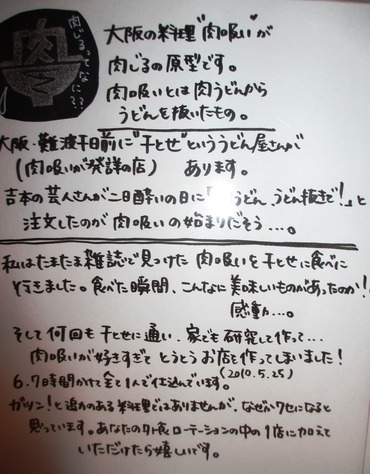 肉じるってなに??
肉
大阪の料理"肉吸い"が
肉じるの原型です。
肉吸いとは肉うどんから
うどんを抜いたもの。
大阪・難波千日前に"千とせ"といううどん屋さんが
(肉吸いが発祥の店) あります。
吉本の芸人さんが二日酔いの日に「肉うどん うどん抜きで!」と
注文したのが肉吸いの始まりだそう…。
私はたまたま雑誌で見つけた肉吸いを千とせに食べに
行きました。食べた瞬間、こんなに美味しいものがあったのか!
感動…。
そして何回も千とせに通い、家でも研究して作って…
肉吸いが好きすぎてとうとうお店を作ってしまいました!
(2010.5.25)
6.7時間かけて全て1人で仕込んでいます。
ガツン!と迫力のある料理ではありませんが、なぜかクセになると
思っています。あなたの外食ローテーションの中の1店に加えて
いただけたら嬉しいです。